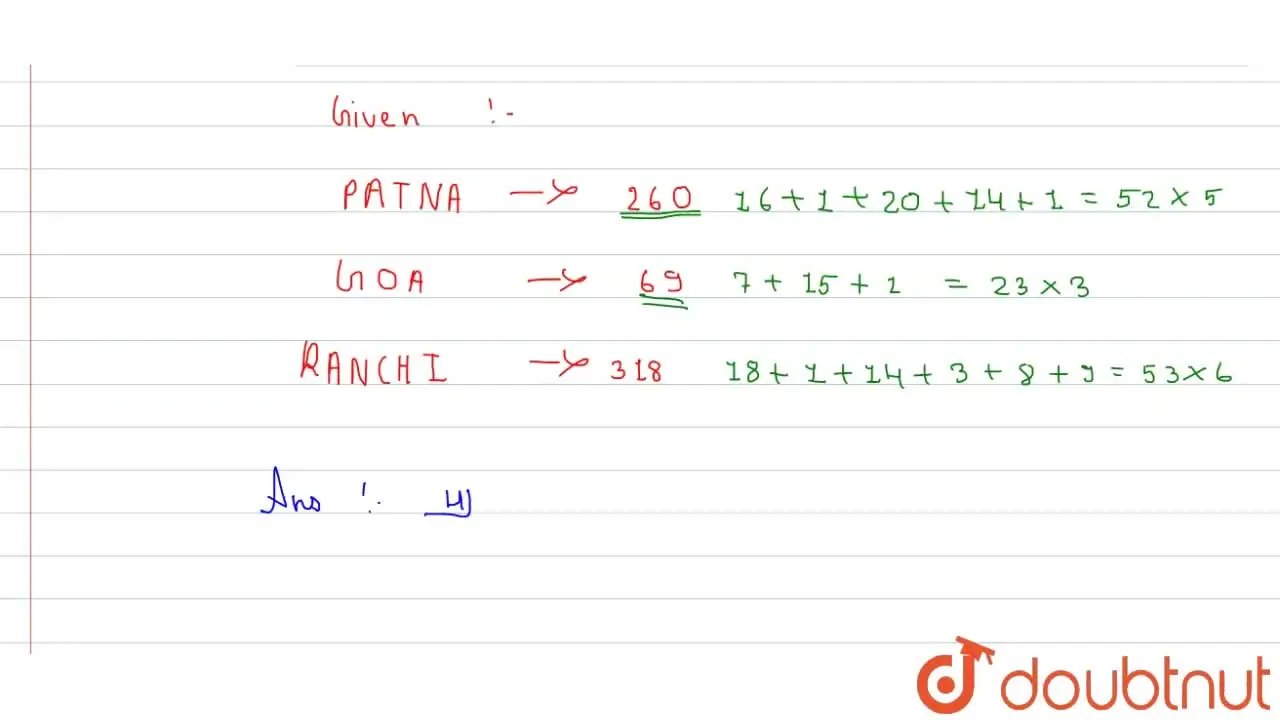 Given :-
PATNA → 260 16+1+20+14+1 = 52×5
GOA → 69 7+15+1 = 23×3
RANCHI → 318 18+1+14+3+8+9=53×6
Ans :- 4)
doubtnut